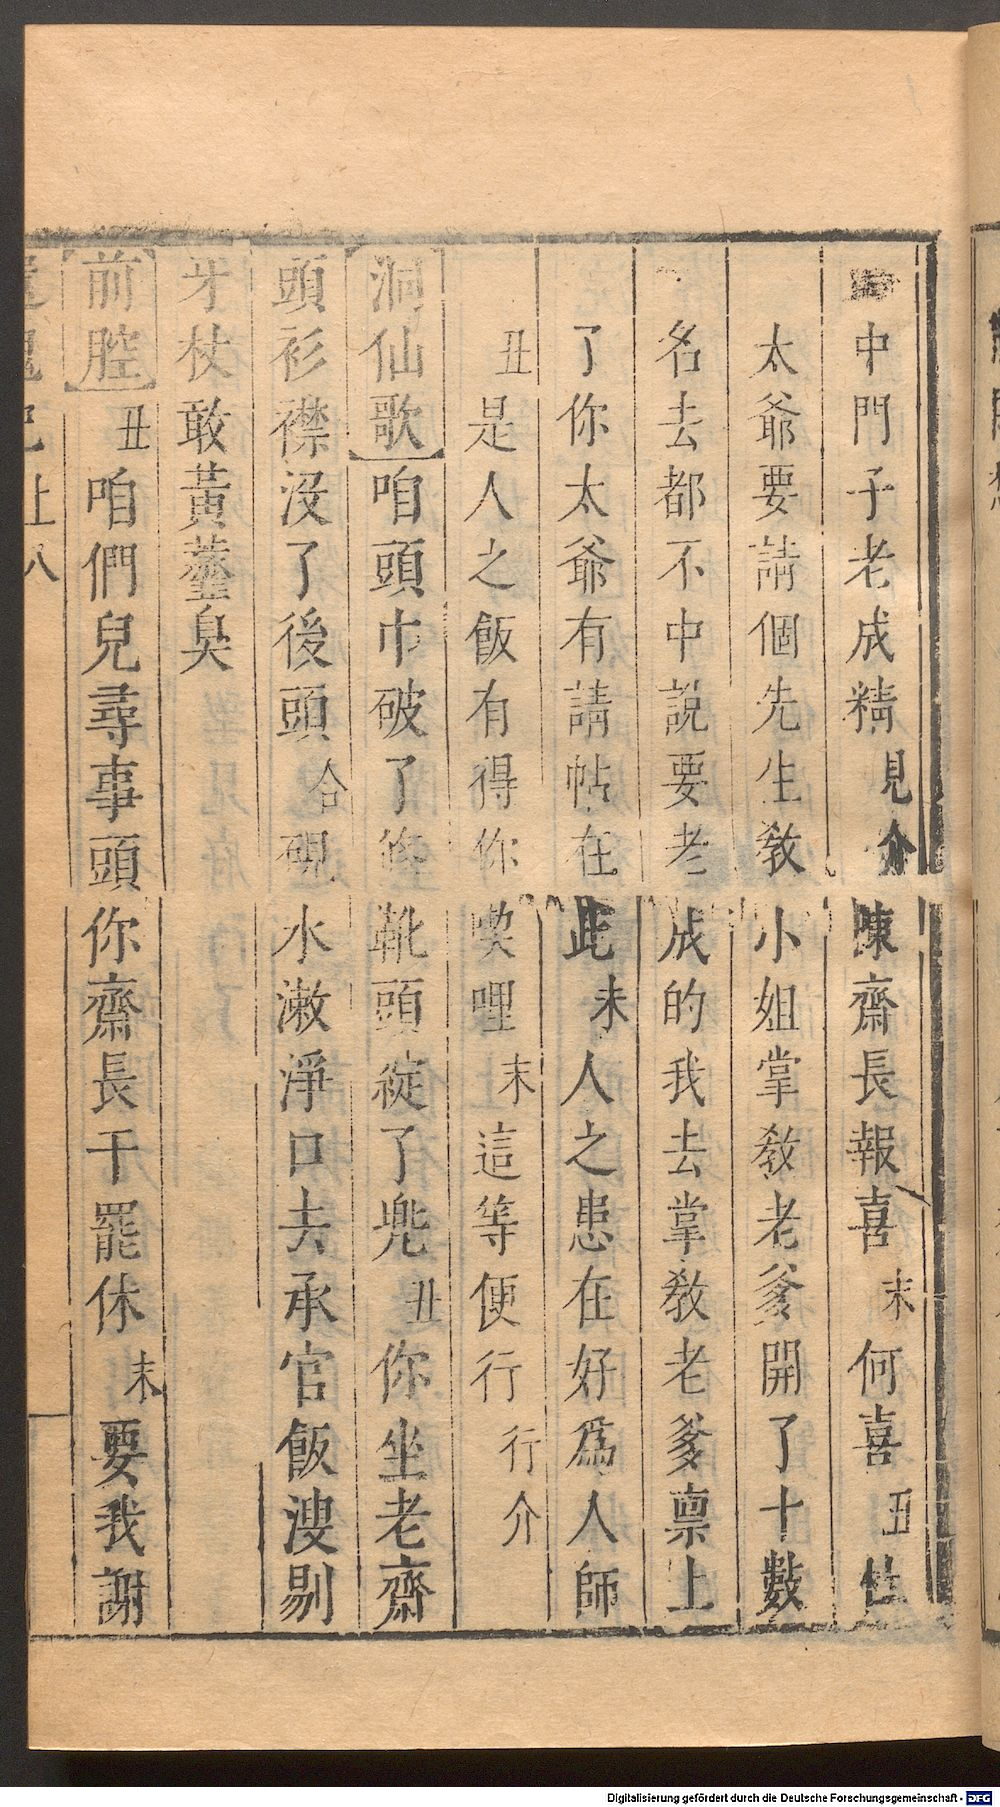 中門子老成精見介陳齋長報喜末何喜丑杜
太爺要請個先生教小姐掌教老爹開了十數
名去都不中說要老成的我去掌教老爹禀上
了你太爺有請帖在此末人之患在好為人師
丑是人之飯有得你喫哩末這等便行行介
洞仙歌咱頭巾破了修靴頭綻了兜丑你坐老齋
頭衫襟沒了後頭合硯水漱淨口去承官飯溲剔
牙杖敢黃虀臭
前腔丑咱們兒尋事頭你齋長干罷休末要我謝
記上八
Digitalisierung gefördert durch die Deutsche Forschungsgemeinschaft - DFG